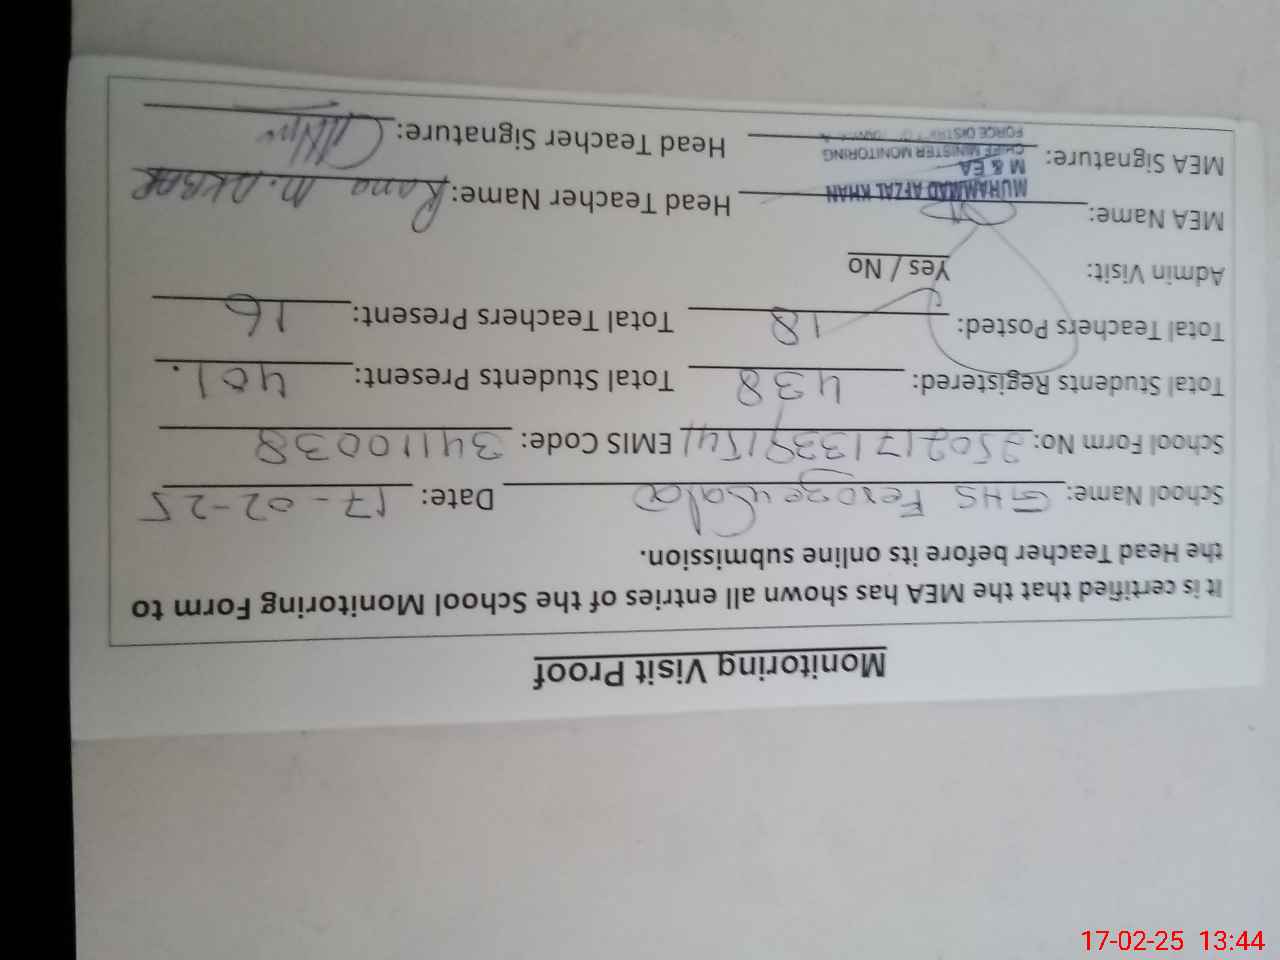 Monitoring Visit Proof
It is certified that the MEA has shown all entries of the School Monitoring Form to
the Head Teacher before its online submission.
School Name: GHS Ferozewala Date: 17-02-25
School Form No: EMIS Code: 34110038
Total Students Registered: 438 Total Students Present: 401.
Total Teachers Posted: 18 Total Teachers Present: 16
Admin Visit: Yes / No
MEA Name: Head Teacher Name: Rana M. AKBAR
MUHAMMAD AFZAL KHAN
M & EA
MEA Signature: Head Teacher Signature:
CHIEF MINISTER MONITORING
FORCE DISTRICT
17-02-25 13:44